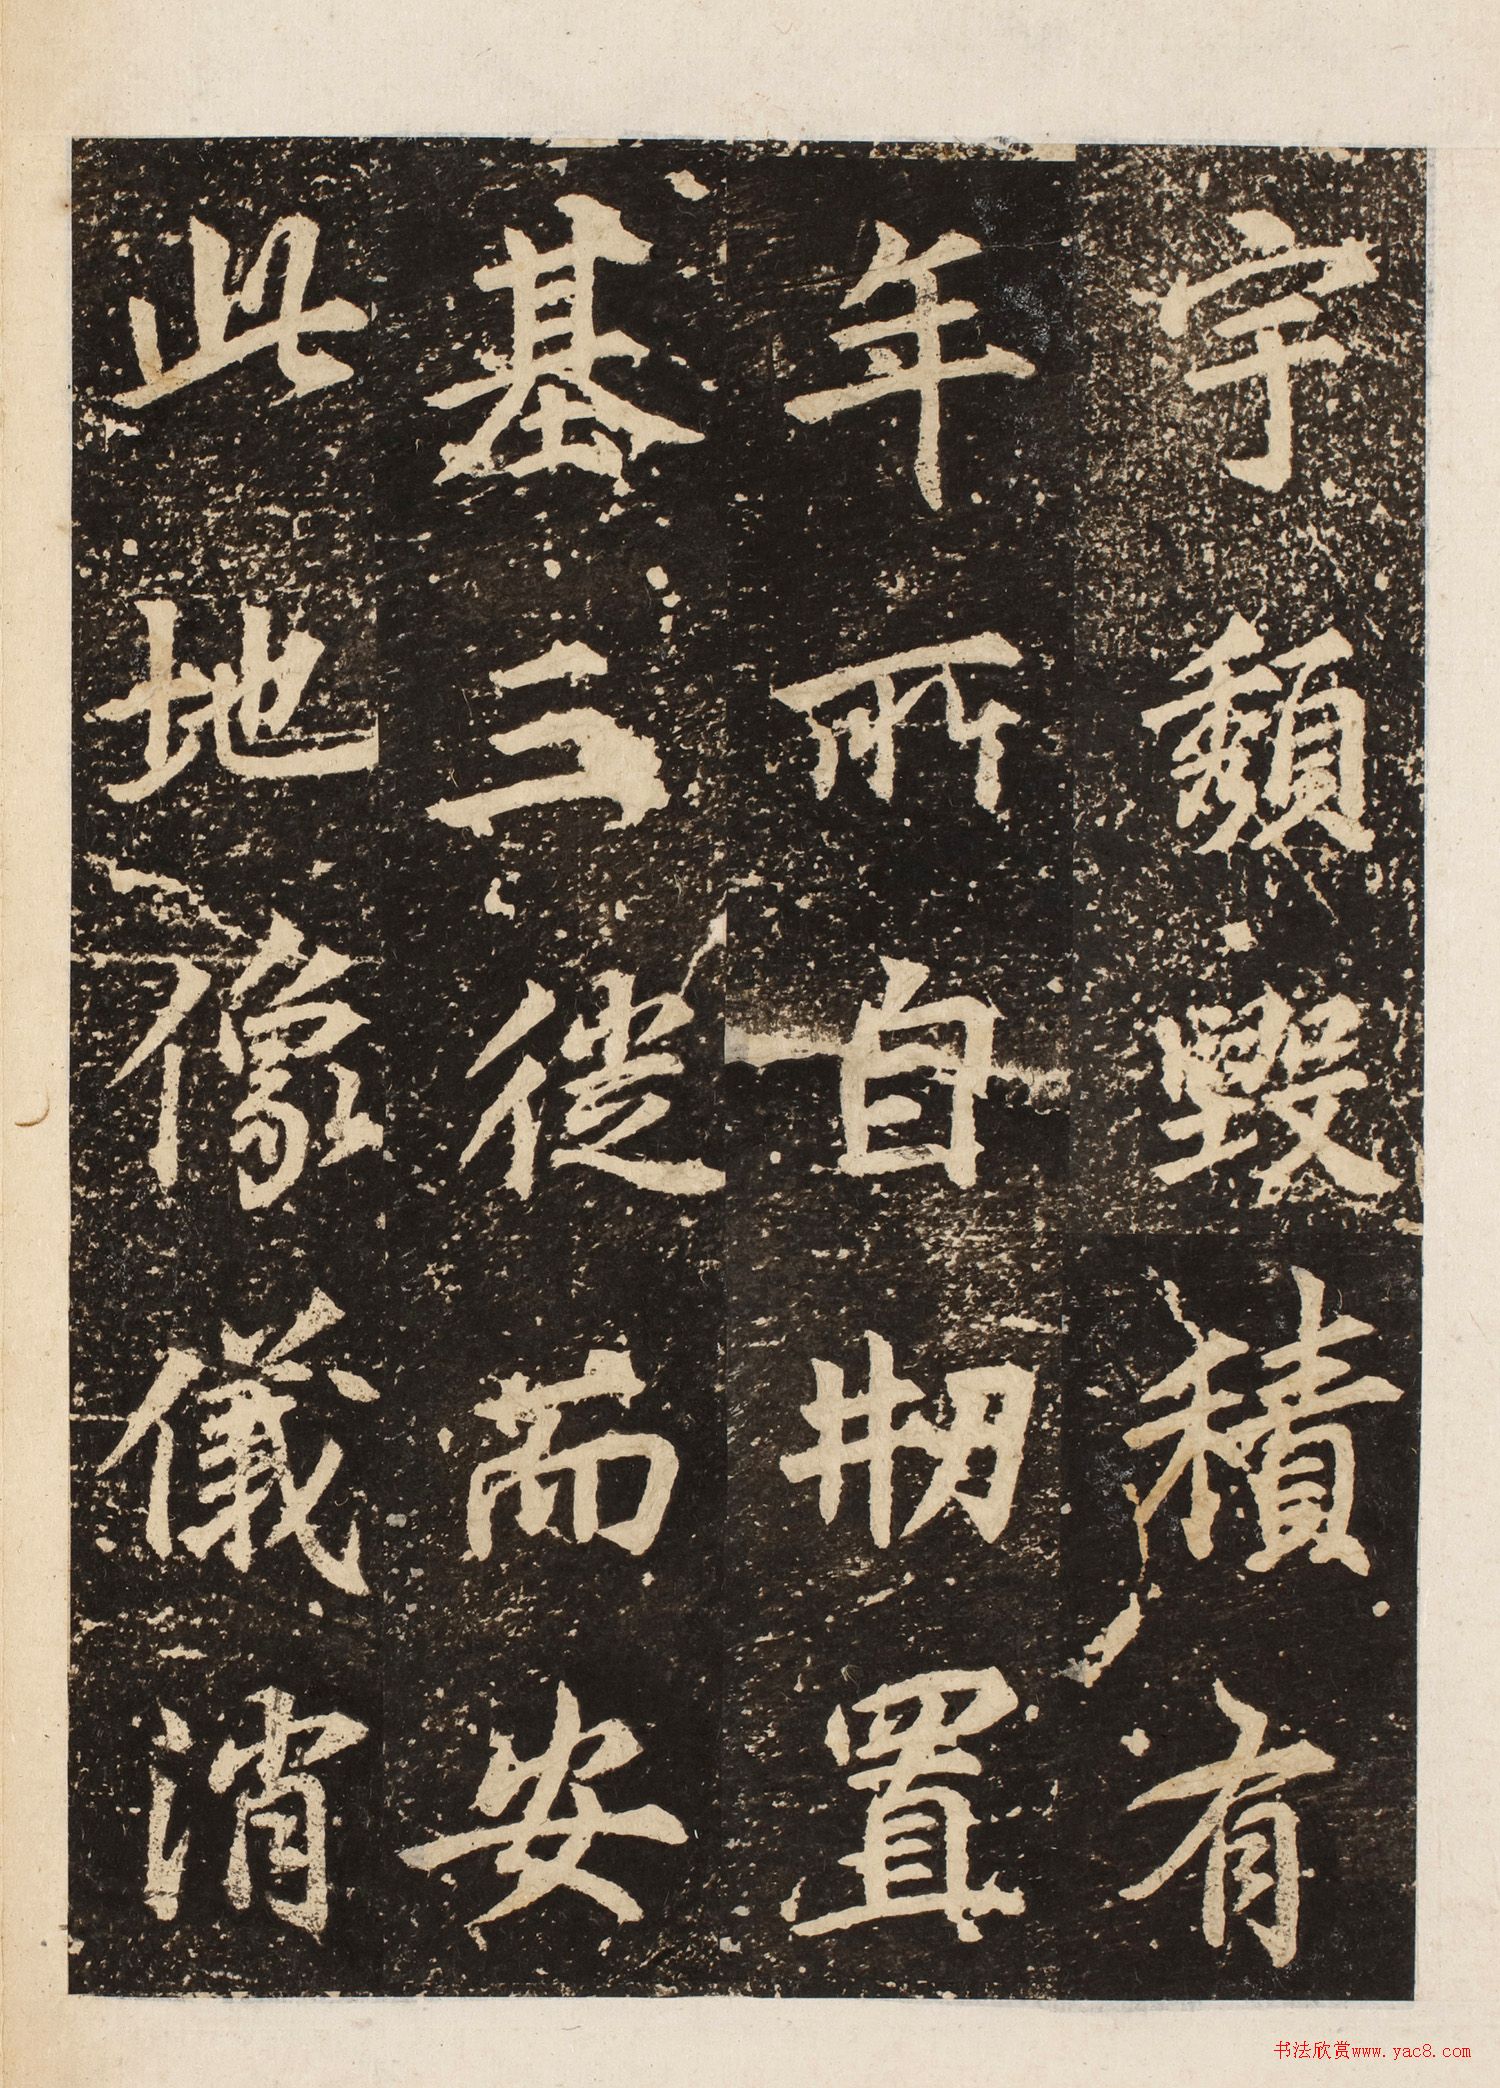 宇頹毀積有
年所自剏置
基三徙而安
此地像儀消
书法欣赏www.yac8.com